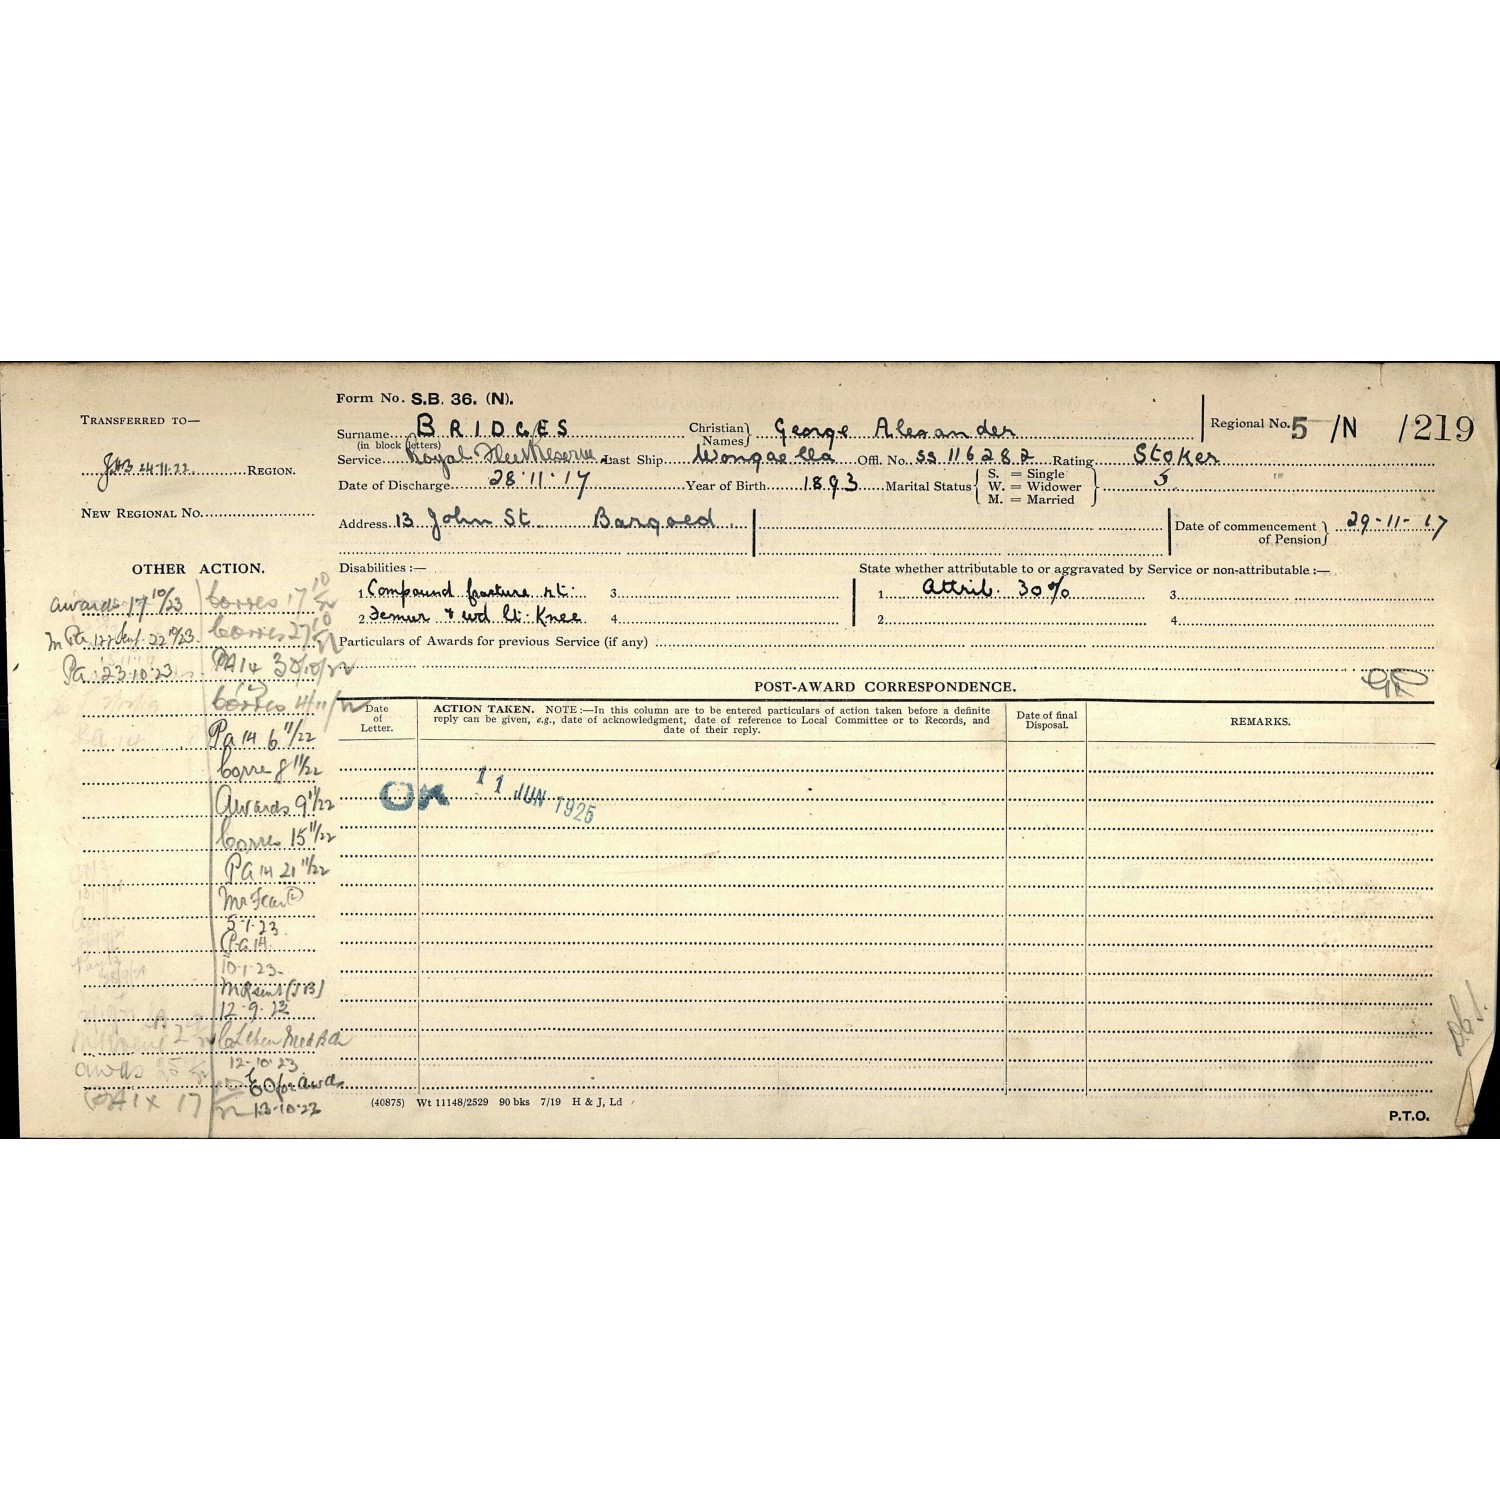 Form No. S.B. 36. (N).
TRANSFERRED TO—
24.11.22 REGION.
NEW REGIONAL No.
Surname BRIDGES
(in block letters)
Christian Names} George Alexander
Regional No. 5 /N /219
Service Royal Fleet Reserve Last Ship Wongaella Offl. No. SS 116282 Rating Stoker
Date of Discharge 28.11.17 Year of Birth 1893 Marital Status { S. = Single
W. = Widower
M. = Married } S
Address 13 John St. Bargoed
Date of commencement of Pension} 29-11-17
OTHER ACTION.
Disabilities :—
State whether attributable to or aggravated by Service or non-attributable :—
1 Compound fracture rt. 3
1 Attrib. 30% 3.
2 Femur & wd lt. Knee 4
2 4.
Particulars of Awards for previous Service (if any)
Awards 17 10/23
22 10/23
Pa 23.10.23
Corres 17 10/22
Corres 27 10/22
PA14 30/10/22
Corres 4/11/22
Pa 14 6 11/22
Corre 8 11/22
Awards 9 11/22
Corres 15 11/22
PA 14 21 11/22
5.1.23
Pa 14
10.1.23
12.9.23
12.10.23
13.10.23
POST-AWARD CORRESPONDENCE.
Date of Letter.
ACTION TAKEN. NOTE :—In this column are to be entered particulars of action taken before a definite
reply can be given, e.g., date of acknowledgment, date of reference to Local Committee or to Records, and
date of their reply.
Date of final Disposal.
REMARKS.
OK 11 JUN 1925
(40875) Wt 11148/2529 90 bks 7/19 H & J, Ld
P.T.O.